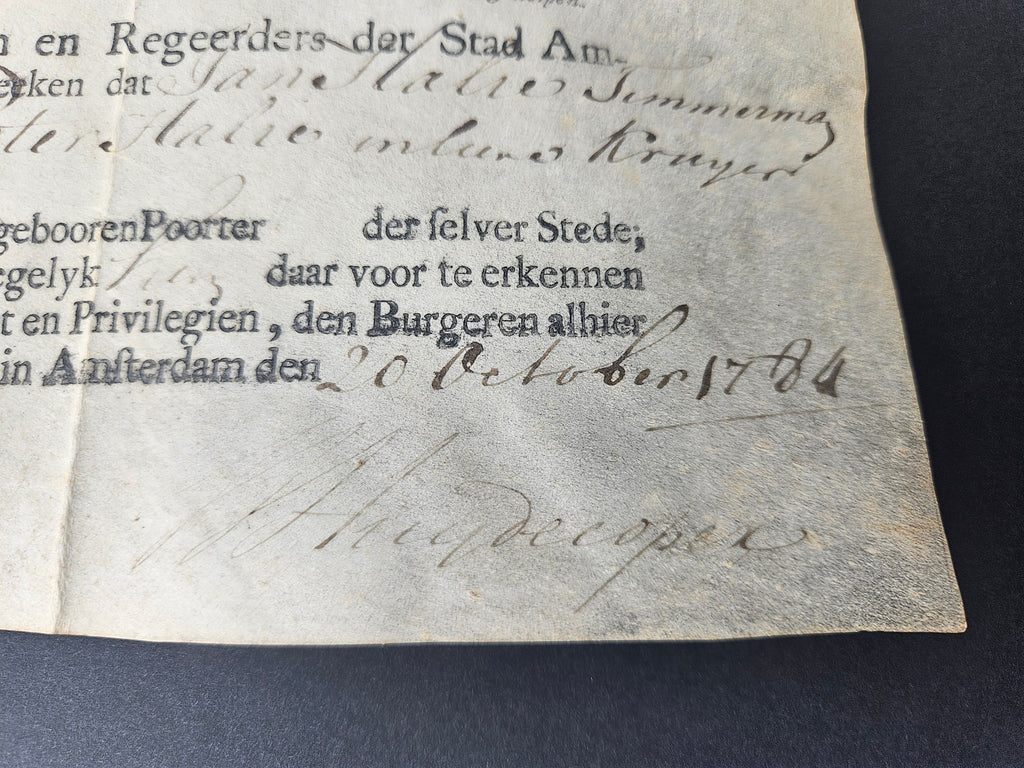 n en Regeerders der Stad Am-
eeken dat Jan Stalie Timmerman
ter Stalie in luven Kruyer
gebooren Poorter der ſelver Stede;
egelyk daar voor te erkennen
t en Privilegien, den Burgeren alhier
in Amſterdam den 20 October 1784
Huydecoper